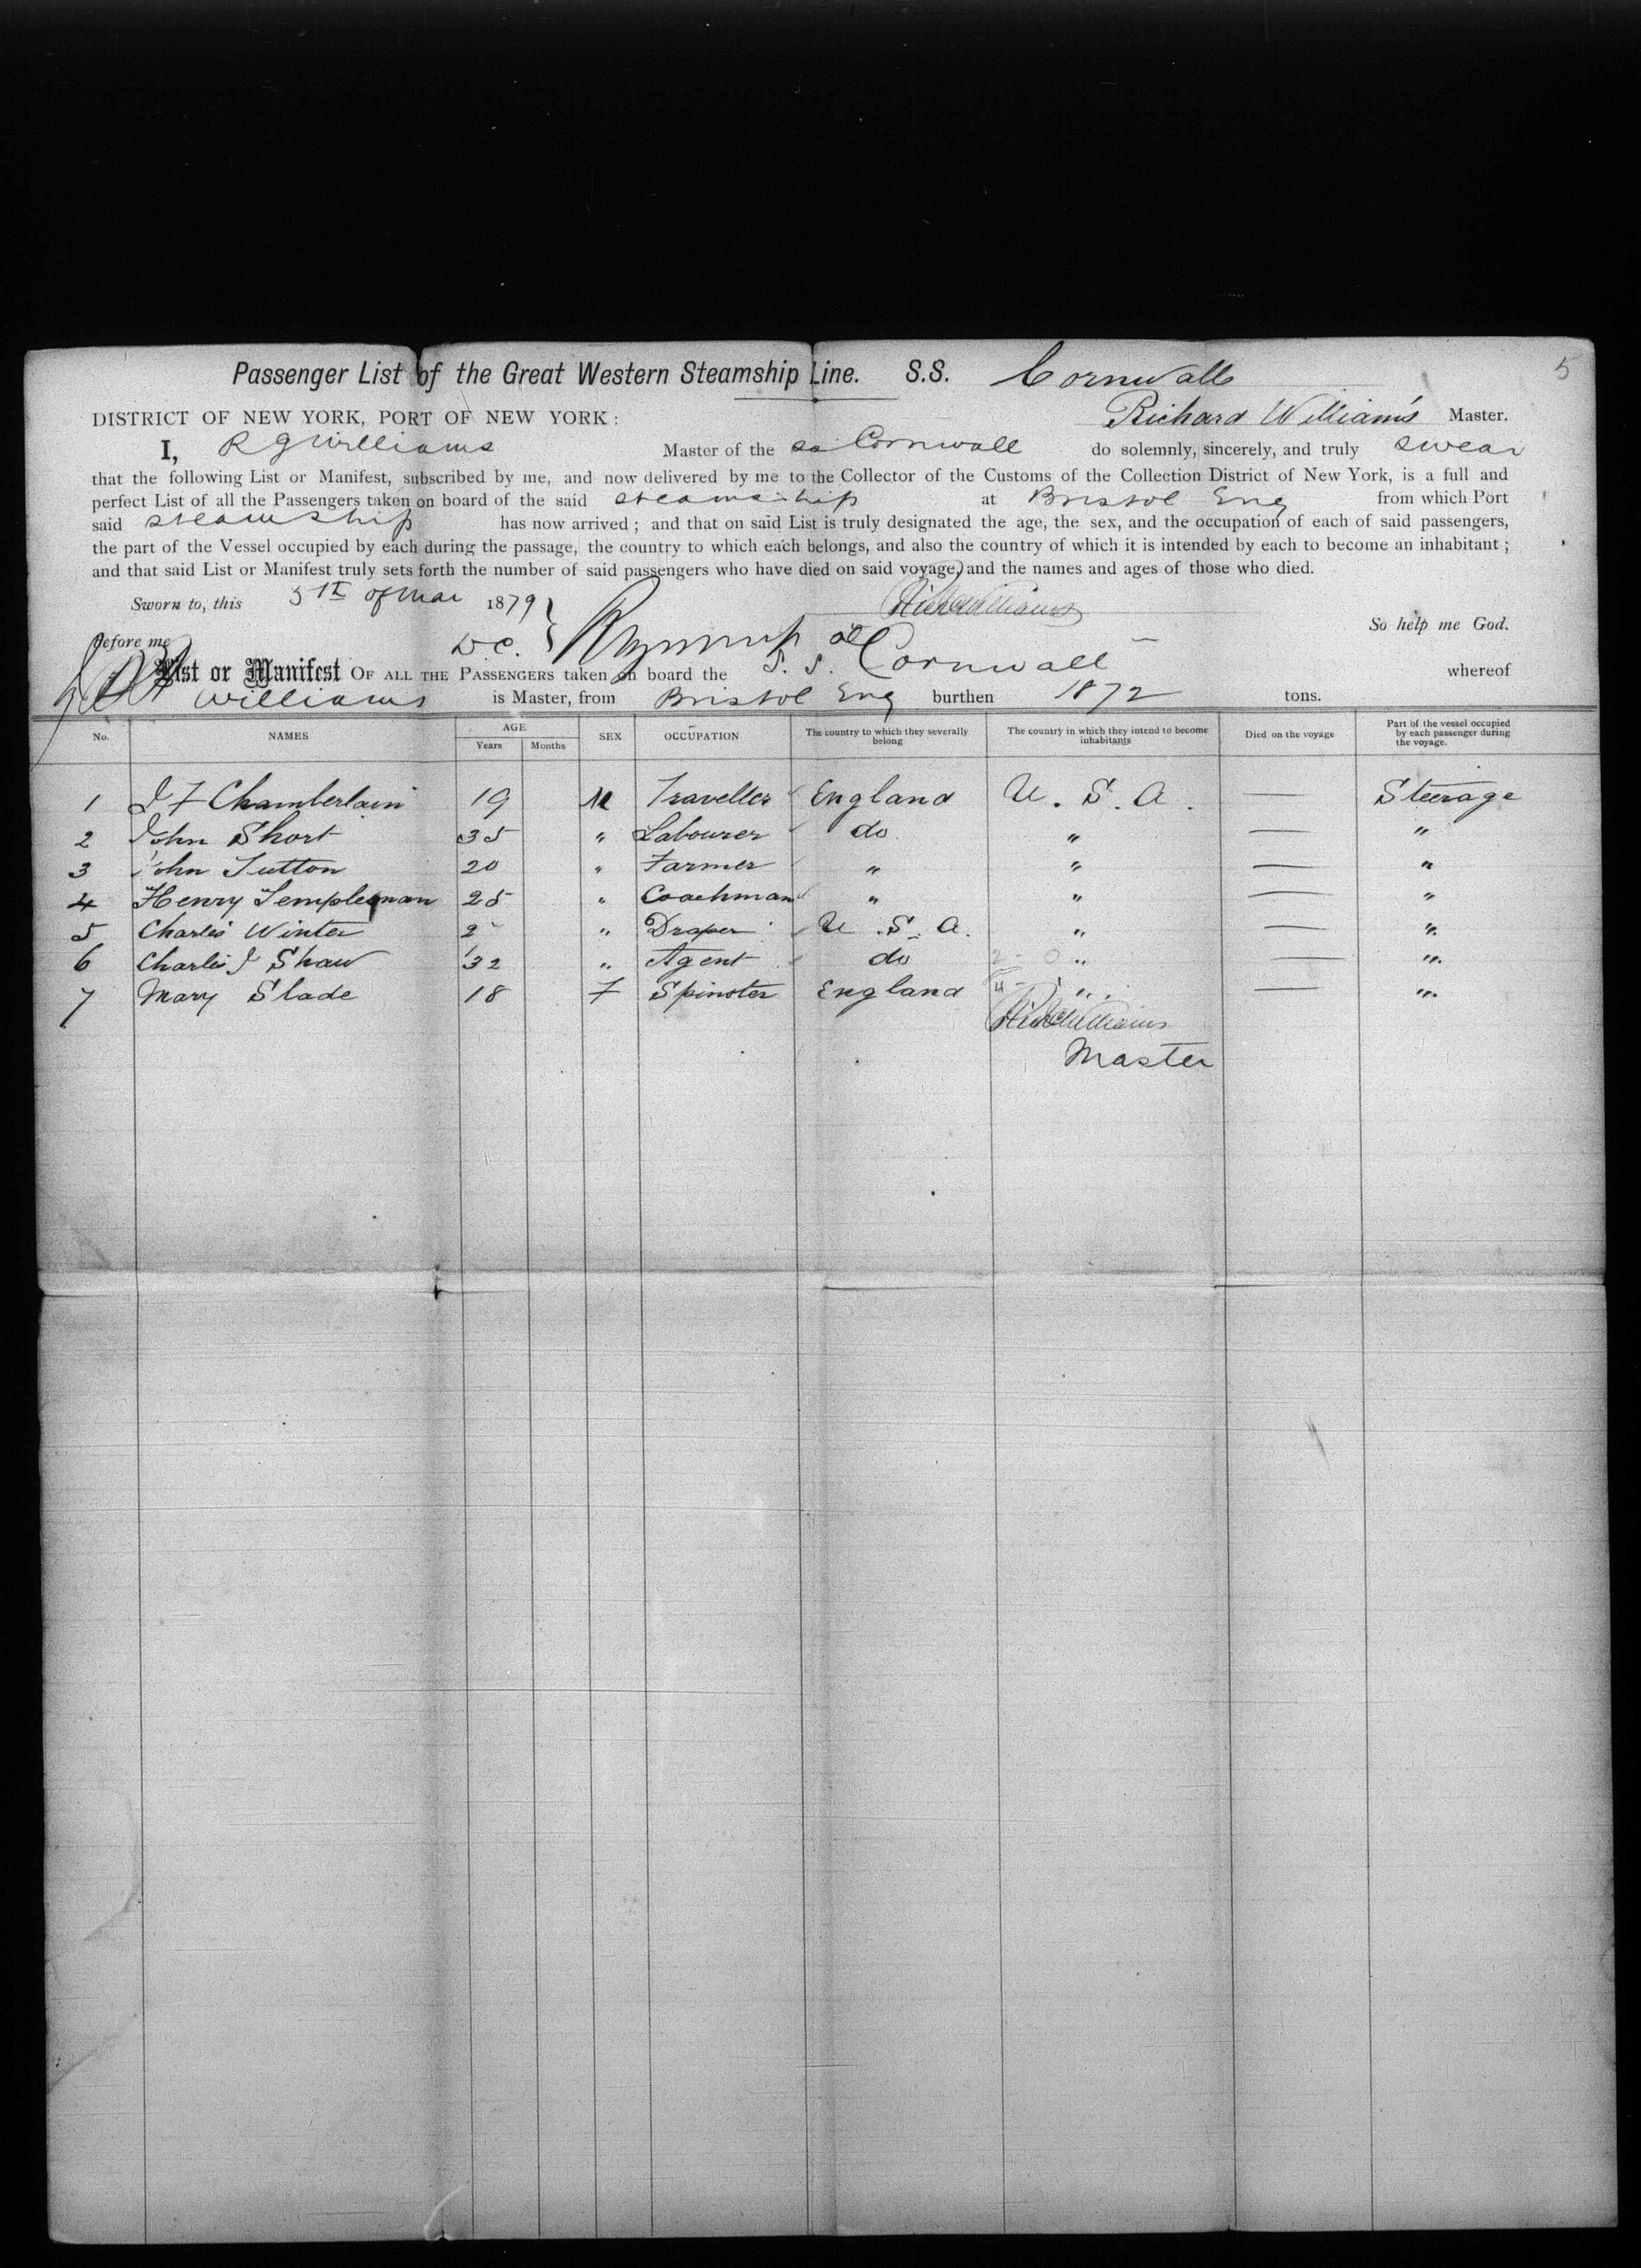 Passenger List of the Great Western Steamship Line. S.S. Cornwall
5
DISTRICT OF NEW YORK, PORT OF NEW YORK: Richard Williams Master.
I, R J Williams Master of the ss Cornwall do solemnly, sincerely, and truly swear
that the following List or Manifest, subscribed by me, and now delivered by me to the Collector of the Customs of the Collection District of New York, is a full and
perfect List of all the Passengers taken on board of the said steamship at Bristol Eng from which Port
said steamship has now arrived; and that on said List is truly designated the age, the sex, and the occupation of each of said passengers,
the part of the Vessel occupied by each during the passage, the country to which each belongs, and also the country of which it is intended by each to become an inhabitant;
and that said List or Manifest truly sets forth the number of said passengers who have died on said voyage, and the names and ages of those who died.
Sworn to, this 5th of Mar 1879 Richd Williams
So help me God.
Before me D.C.
List or Manifest OF ALL THE PASSENGERS taken on board the S. S. Cornwall whereof
Williams is Master, from Bristol Eng burthen 1872 tons.
No. NAMES AGE Years Months SEX OCCUPATION The country to which they severally belong The country in which they intend to become inhabitants Died on the voyage Part of the vessel occupied by each passenger during the voyage.
1 J F Chamberlain 19 M Traveller England U. S. A. — Steerage
2 John Short 35 " Labourer do " — "
3 John Sutton 20 " Farmer " " — "
4 Henry Templeman 25 " Coachman " " — "
5 Charles Winter " Draper U. S. A. " — "
6 Charles J Shaw 32 " Agent do " — "
7 Mary Slade 18 F Spinster England " — "
Richd Williams
Master